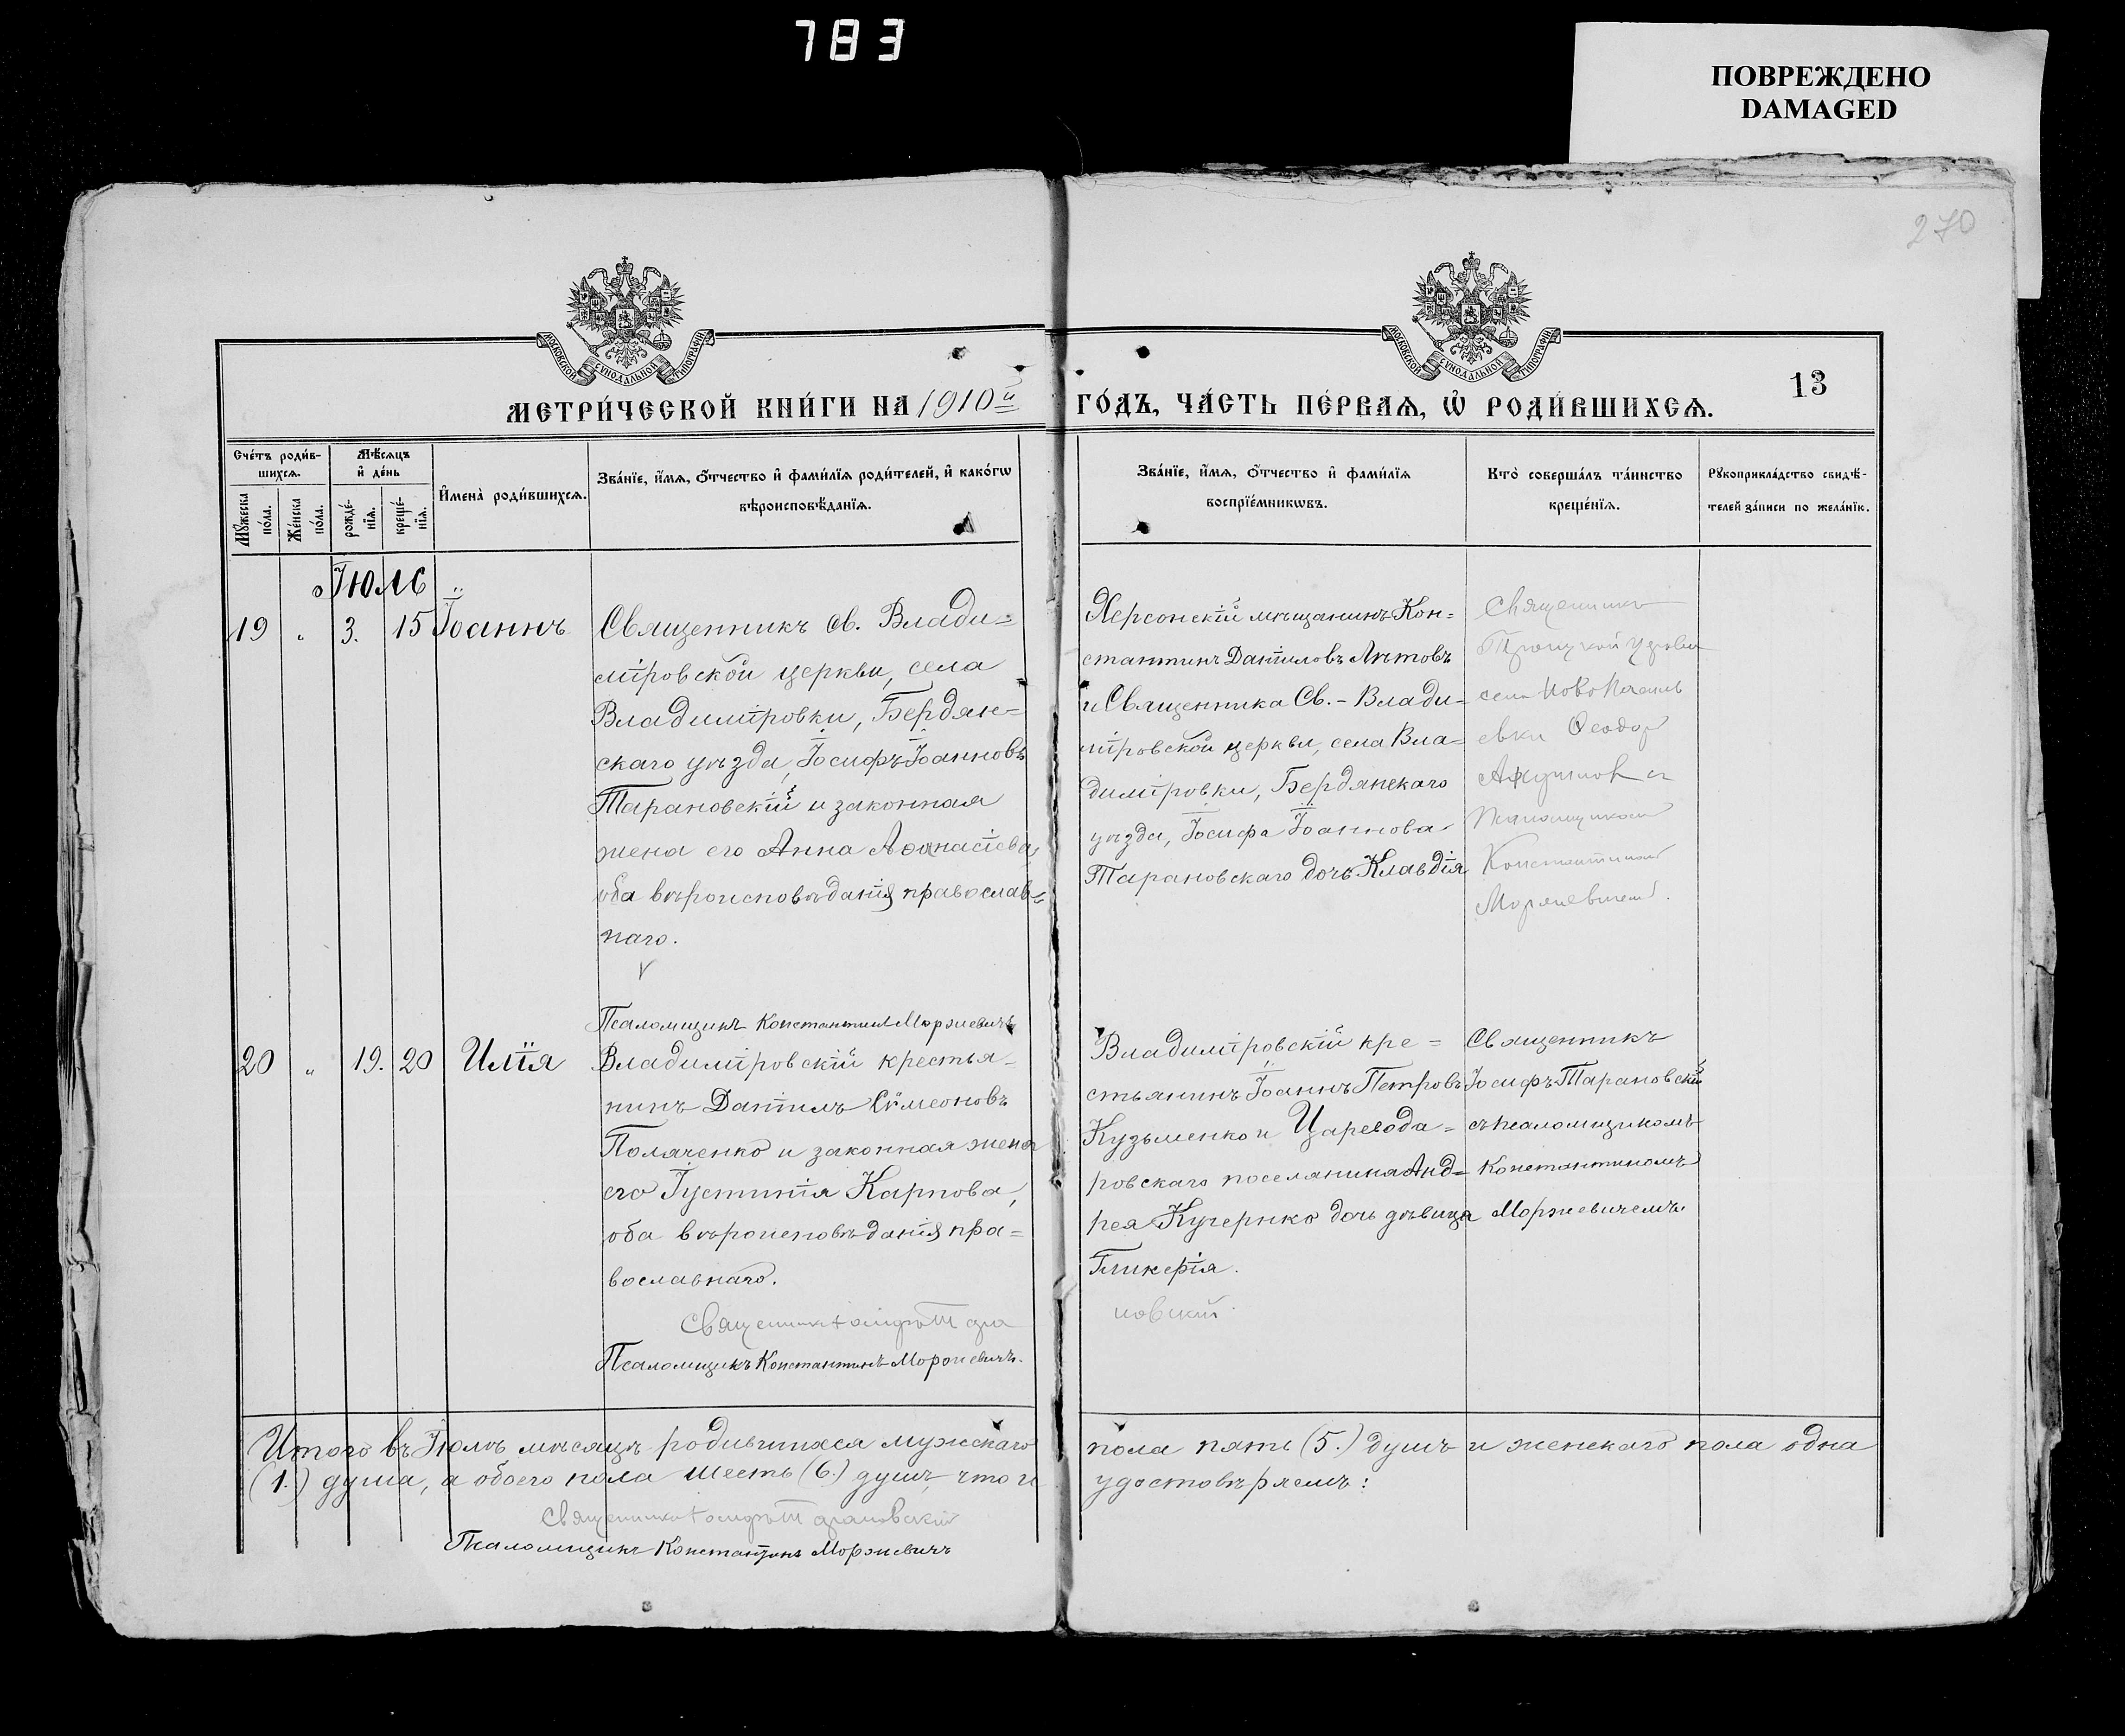 783
ПОВРЕЖДЕНО
DAMAGED
270
МОСКОВСКОЙ СѴНОДАЛЬНОЙ ТИПОГРАФІИ
МОСКОВСКОЙ СѴНОДАЛЬНОЙ ТИПОГРАФІИ
13
МЕТРИ́ЧЕСКОЙ КНИ́ГИ НА 1910й ГО́ДЪ, ЧА́СТЬ ПЕ́РВАѦ, Ѡ҆ РОДИ́ВШИХСѦ.
Сче́тъ роди́в-
шихсѧ.
Мꙋ́жеска
по́ла.
Же́нска
по́ла.
Мѣ́сѧцъ
и҆ де́нь
рожде́-
нїѧ.
креще́-
нїѧ.
И҆мена̀ роди́вшихсѧ.
Зва́нїе, и҆́мѧ, ѻ҆́тчество и҆ фами́лїѧ роди́телей, и҆ како́гѡ
вѣроисповѣ́данїѧ.
Зва́нїе, и҆́мѧ, ѻ҆́тчество и҆ фами́лїѧ
воспрїе́мникѡвъ.
Кто̀ соверша́лъ та́инство
креще́нїѧ.
Рꙋкоприкла́дство свидѣ́-
телей за́писи по жела́нїю.
Іюль
19 " 3. 15 Іоаннъ
Священникъ Св. Влади=
мiровской церкви, села
Владимiровки, Бердян=
скаго уѣзда, Іосифъ Іоанновъ
Тарановскій и законная
жена его Анна Аѳанасіева,
оба вѣроисповѣданія православ=
наго.
Псаломщикъ Константинъ Моржевичъ
Херсонскій мѣщанинъ Кон=
стантинъ Даніиловъ Лѣтовъ
и Священника Св.-Влади-
мiровской церкви, села Вла-
димiровки, Бердянскаго
уѣзда, Іосифа Іоаннова
Тарановскаго дочь Клавдія
Священникъ
Троицкой церкви
села Новопавло
вки Ѳеодор
Псаломщиком
Константином
Моржевичем.
20 " 19. 20 Илія
Владимiровскій крестья-
нинъ Даніилъ Сѵмеоновъ
Поляченко и законная жена
его Іустинія Карпова,
оба вѣроисповѣданія пра=
вославнаго.
Священникъ Іосифъ Тара
новскій.
Псаломщикъ Константинъ Моржевичъ.
Владимiровскій кре=
стьянинъ Іоаннъ Петровъ
Кузьменко и Царевода=
ровскаго поселянина Анд=
рея Кучеренко дочь дѣвица
Гликерія.
Священникъ
Іосифъ Тарановскій
съ псаломщикомъ
Константиномъ
Моржевичемъ.
Итого въ Іюлѣ мѣсяцѣ родившихся мужскаго пола пять (5.) душъ и женскаго пола одна
(1.) душа, а обоего пола шесть (6.) душъ, что и удостовѣряемъ:
Священникъ Іосифъ Тарановскій
Псаломщикъ Константинъ Моржевичъ